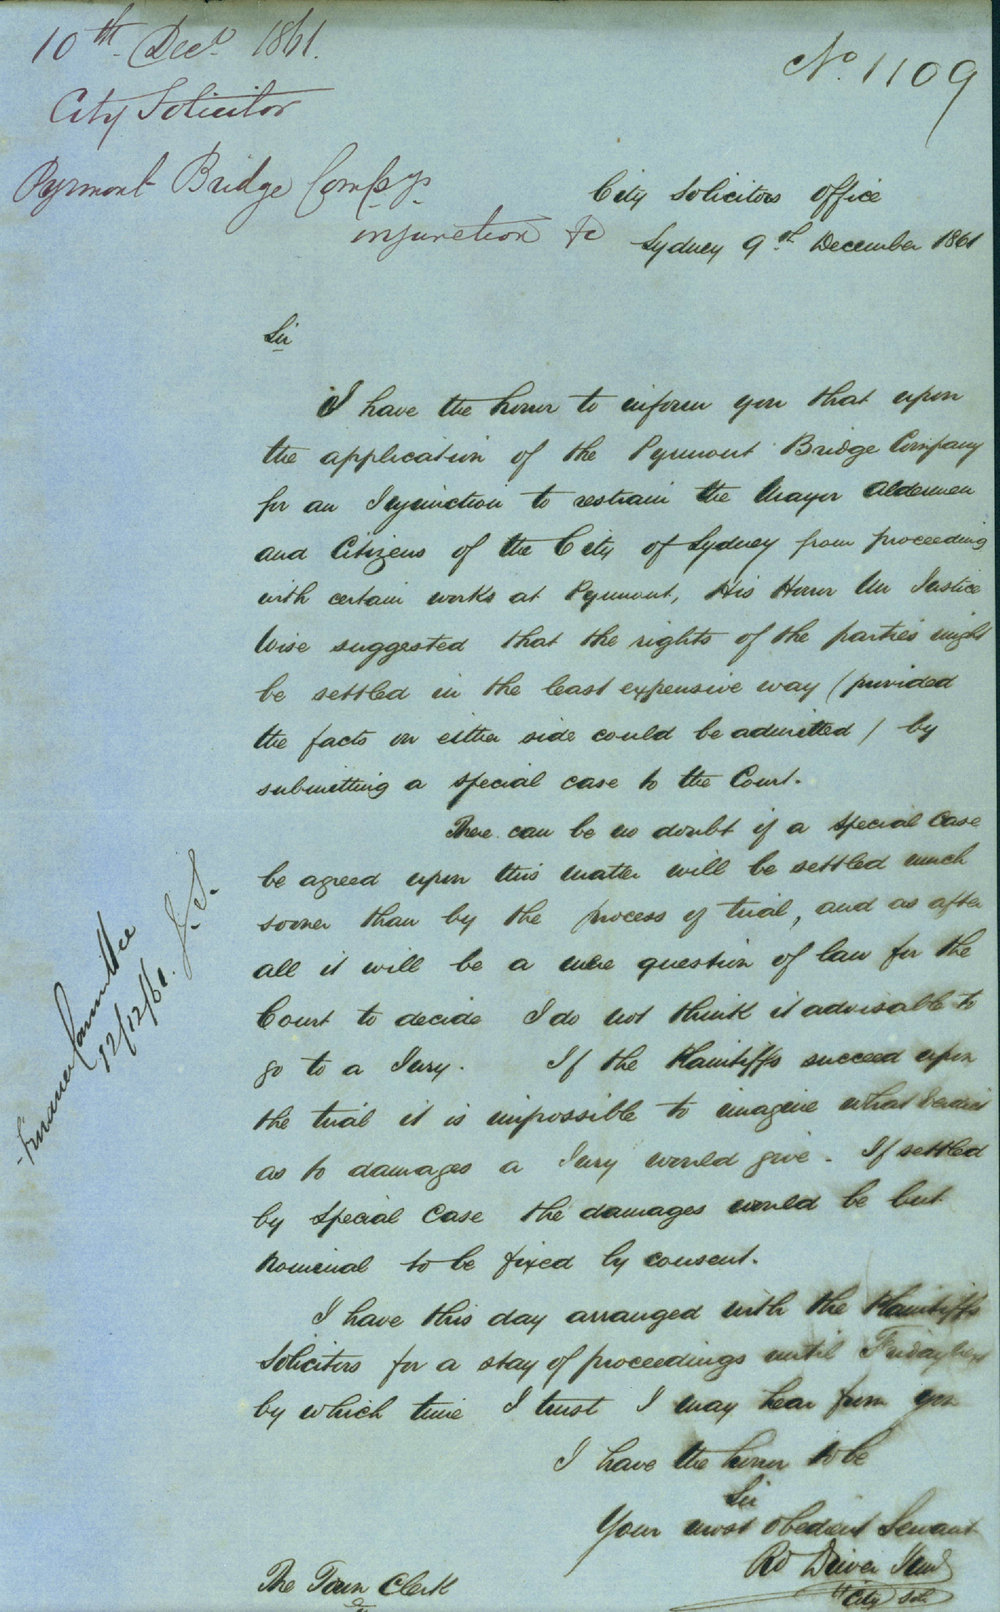 10th Decr 1861.
No. 1109
City Solicitor
Pyrmont Bridge Compys.
injunction &c
City Solicitors Office
Sydney 9th December 1861
Sir
I have the honor to inform you that upon
the application of the Pyrmont Bridge Company
for an Injunction to restrain the Mayor Aldermen
and Citizens of the City of Sydney from proceeding
with certain works at Pyrmont, His Honor Mr Justice
Wise suggested that the rights of the parties might
be settled in the least expensive way (provided
the facts on either side could be admitted) by
submitting a special case to the Court.
There can be no doubt if a special case
be agreed upon this matter will be settled much
sooner than by the process of trial, and as after
all it will be a mere question of law for the
Court to decide I do not think it advisable to
go to a Jury. If the Plaintiffs succeed upon
the trial it is impossible to imagine what
as to damages a Jury would give. If settled
by special case the damages would be but
nominal to be fixed by consent.
I have this day arranged with the Plaintiffs
Solicitors for a stay of proceedings until Friday next
by which time I trust I may hear from you
I have the honor to be
Sir
Your most obedient Servant
Rd Driver Junr
City Solr
The Town Clerk
Finance Committee
12/12/61. J.S.